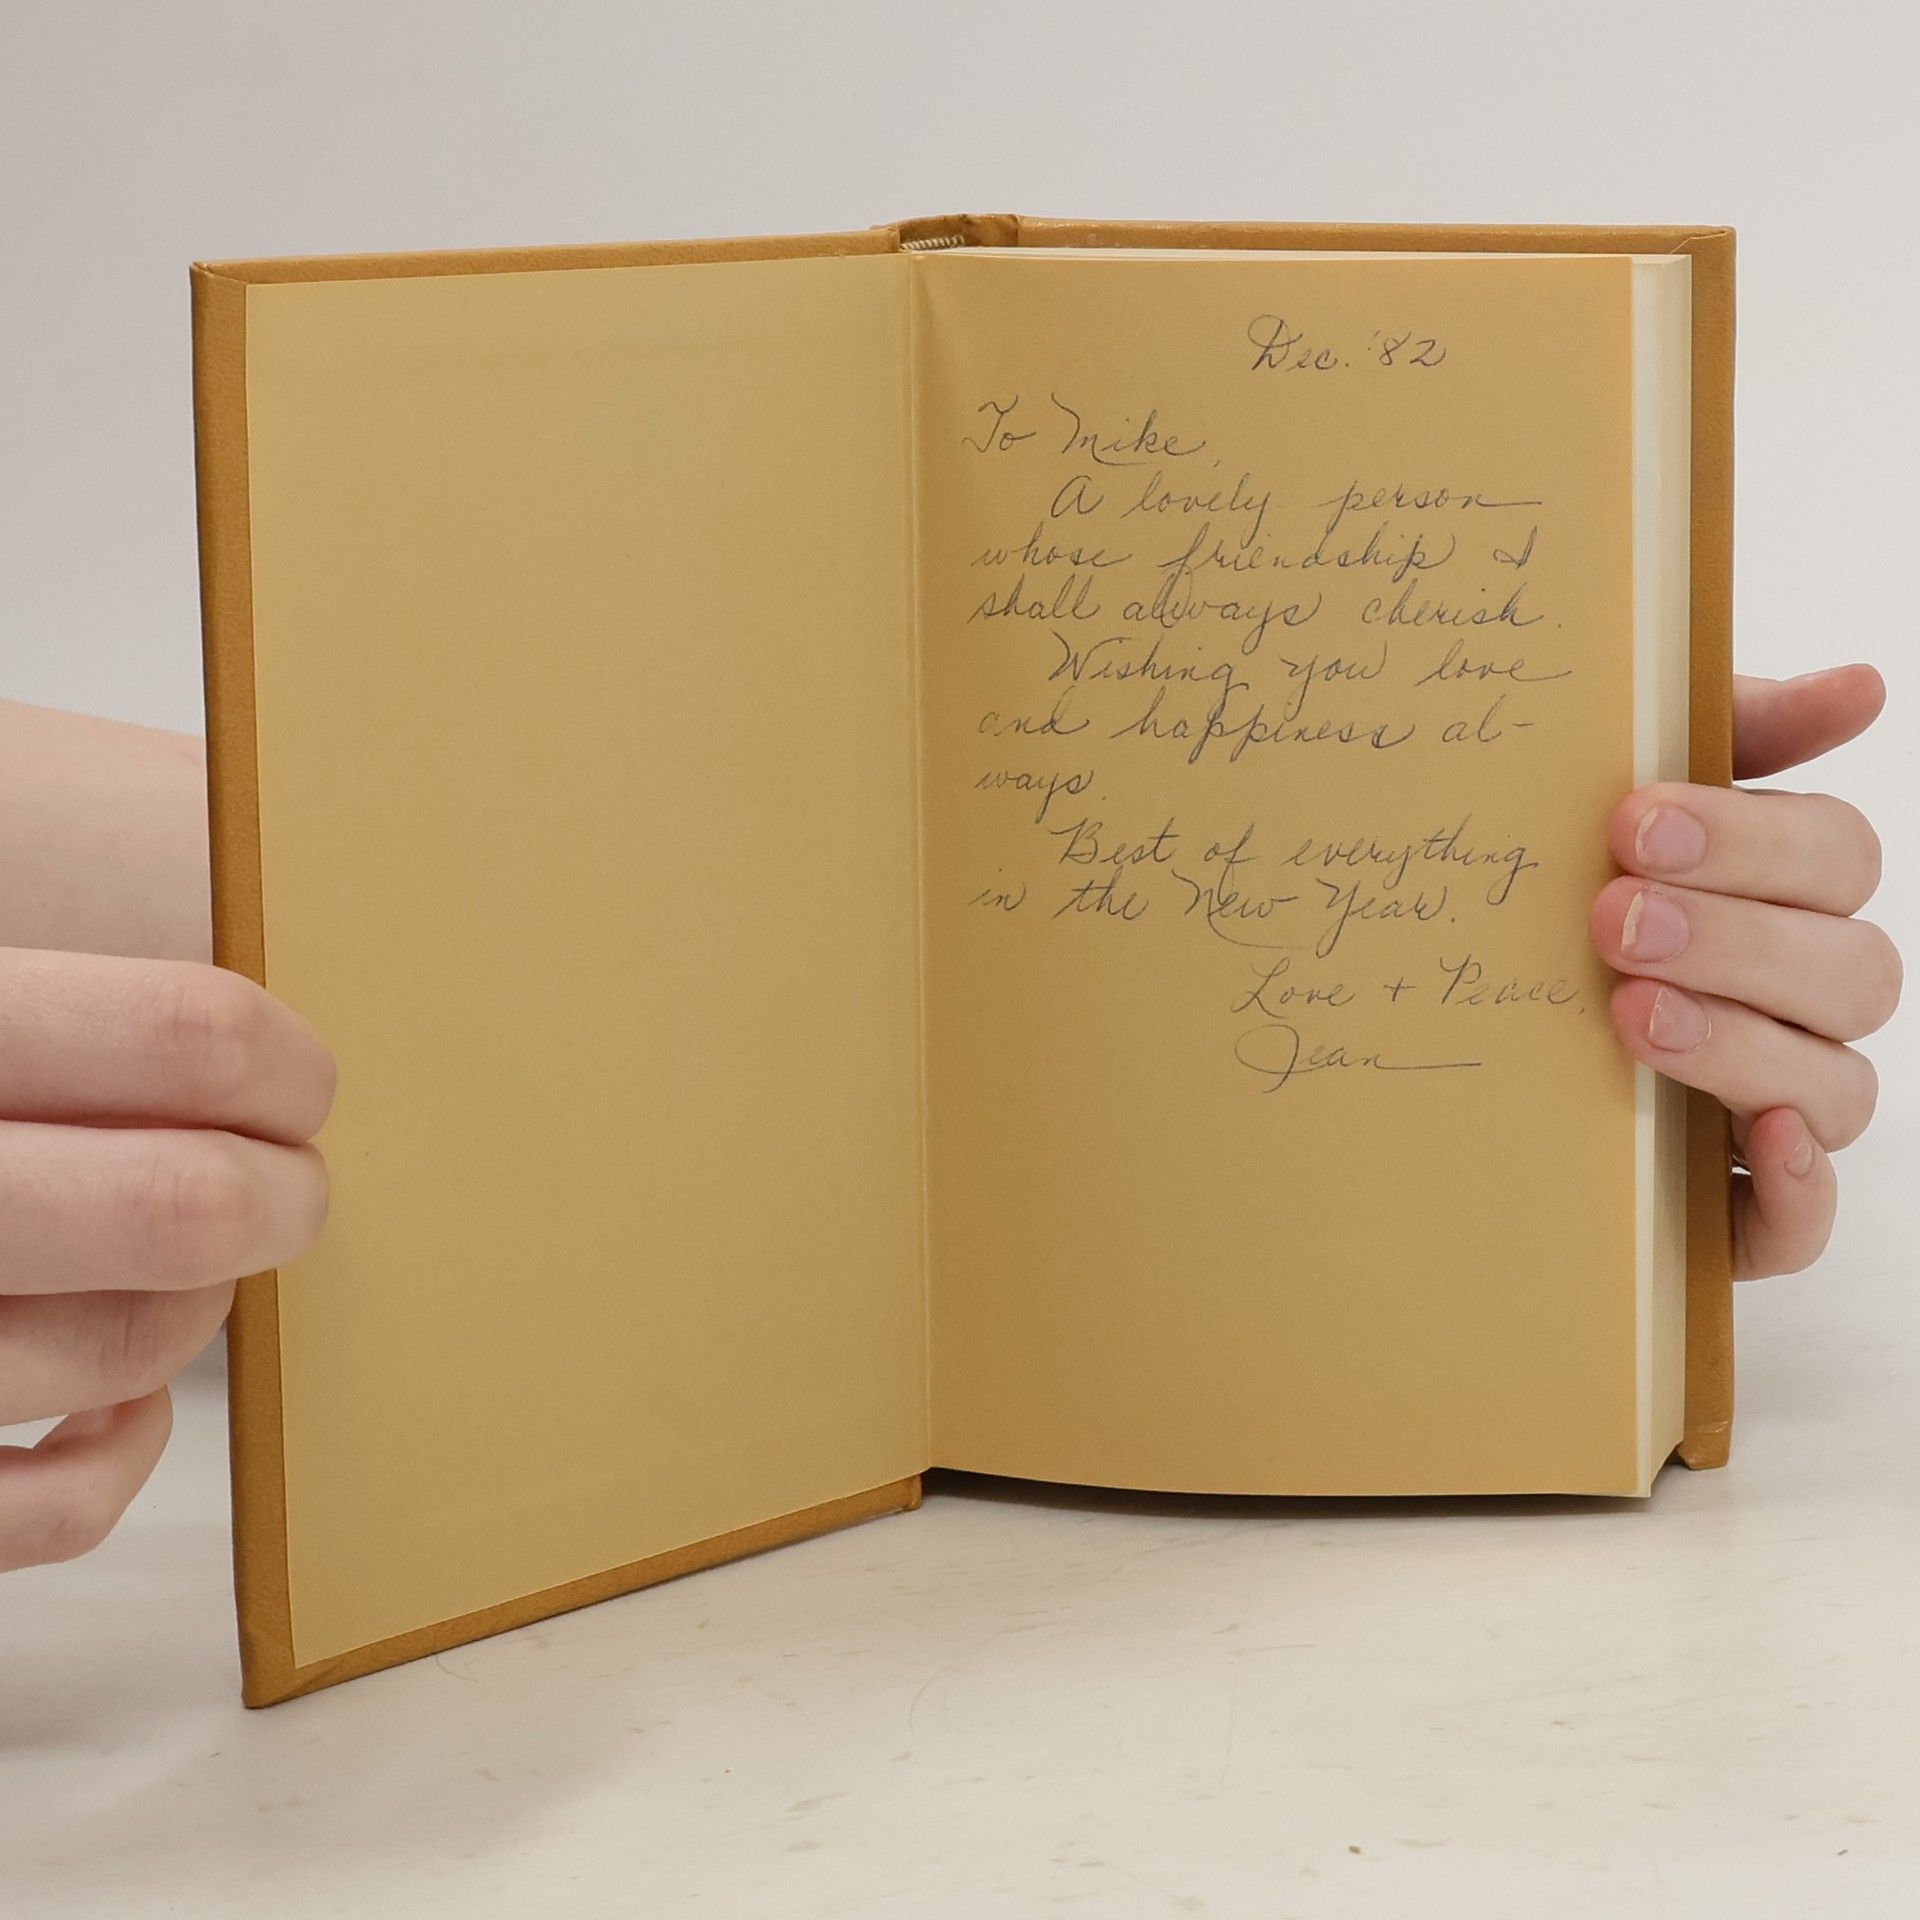 Dec. '82
To Mike,
A lovely person
whose friendship I
shall always cherish.
Wishing you love
and happiness al-
ways.
Best of everything
in the New Year.
Love + Peace,
Jean